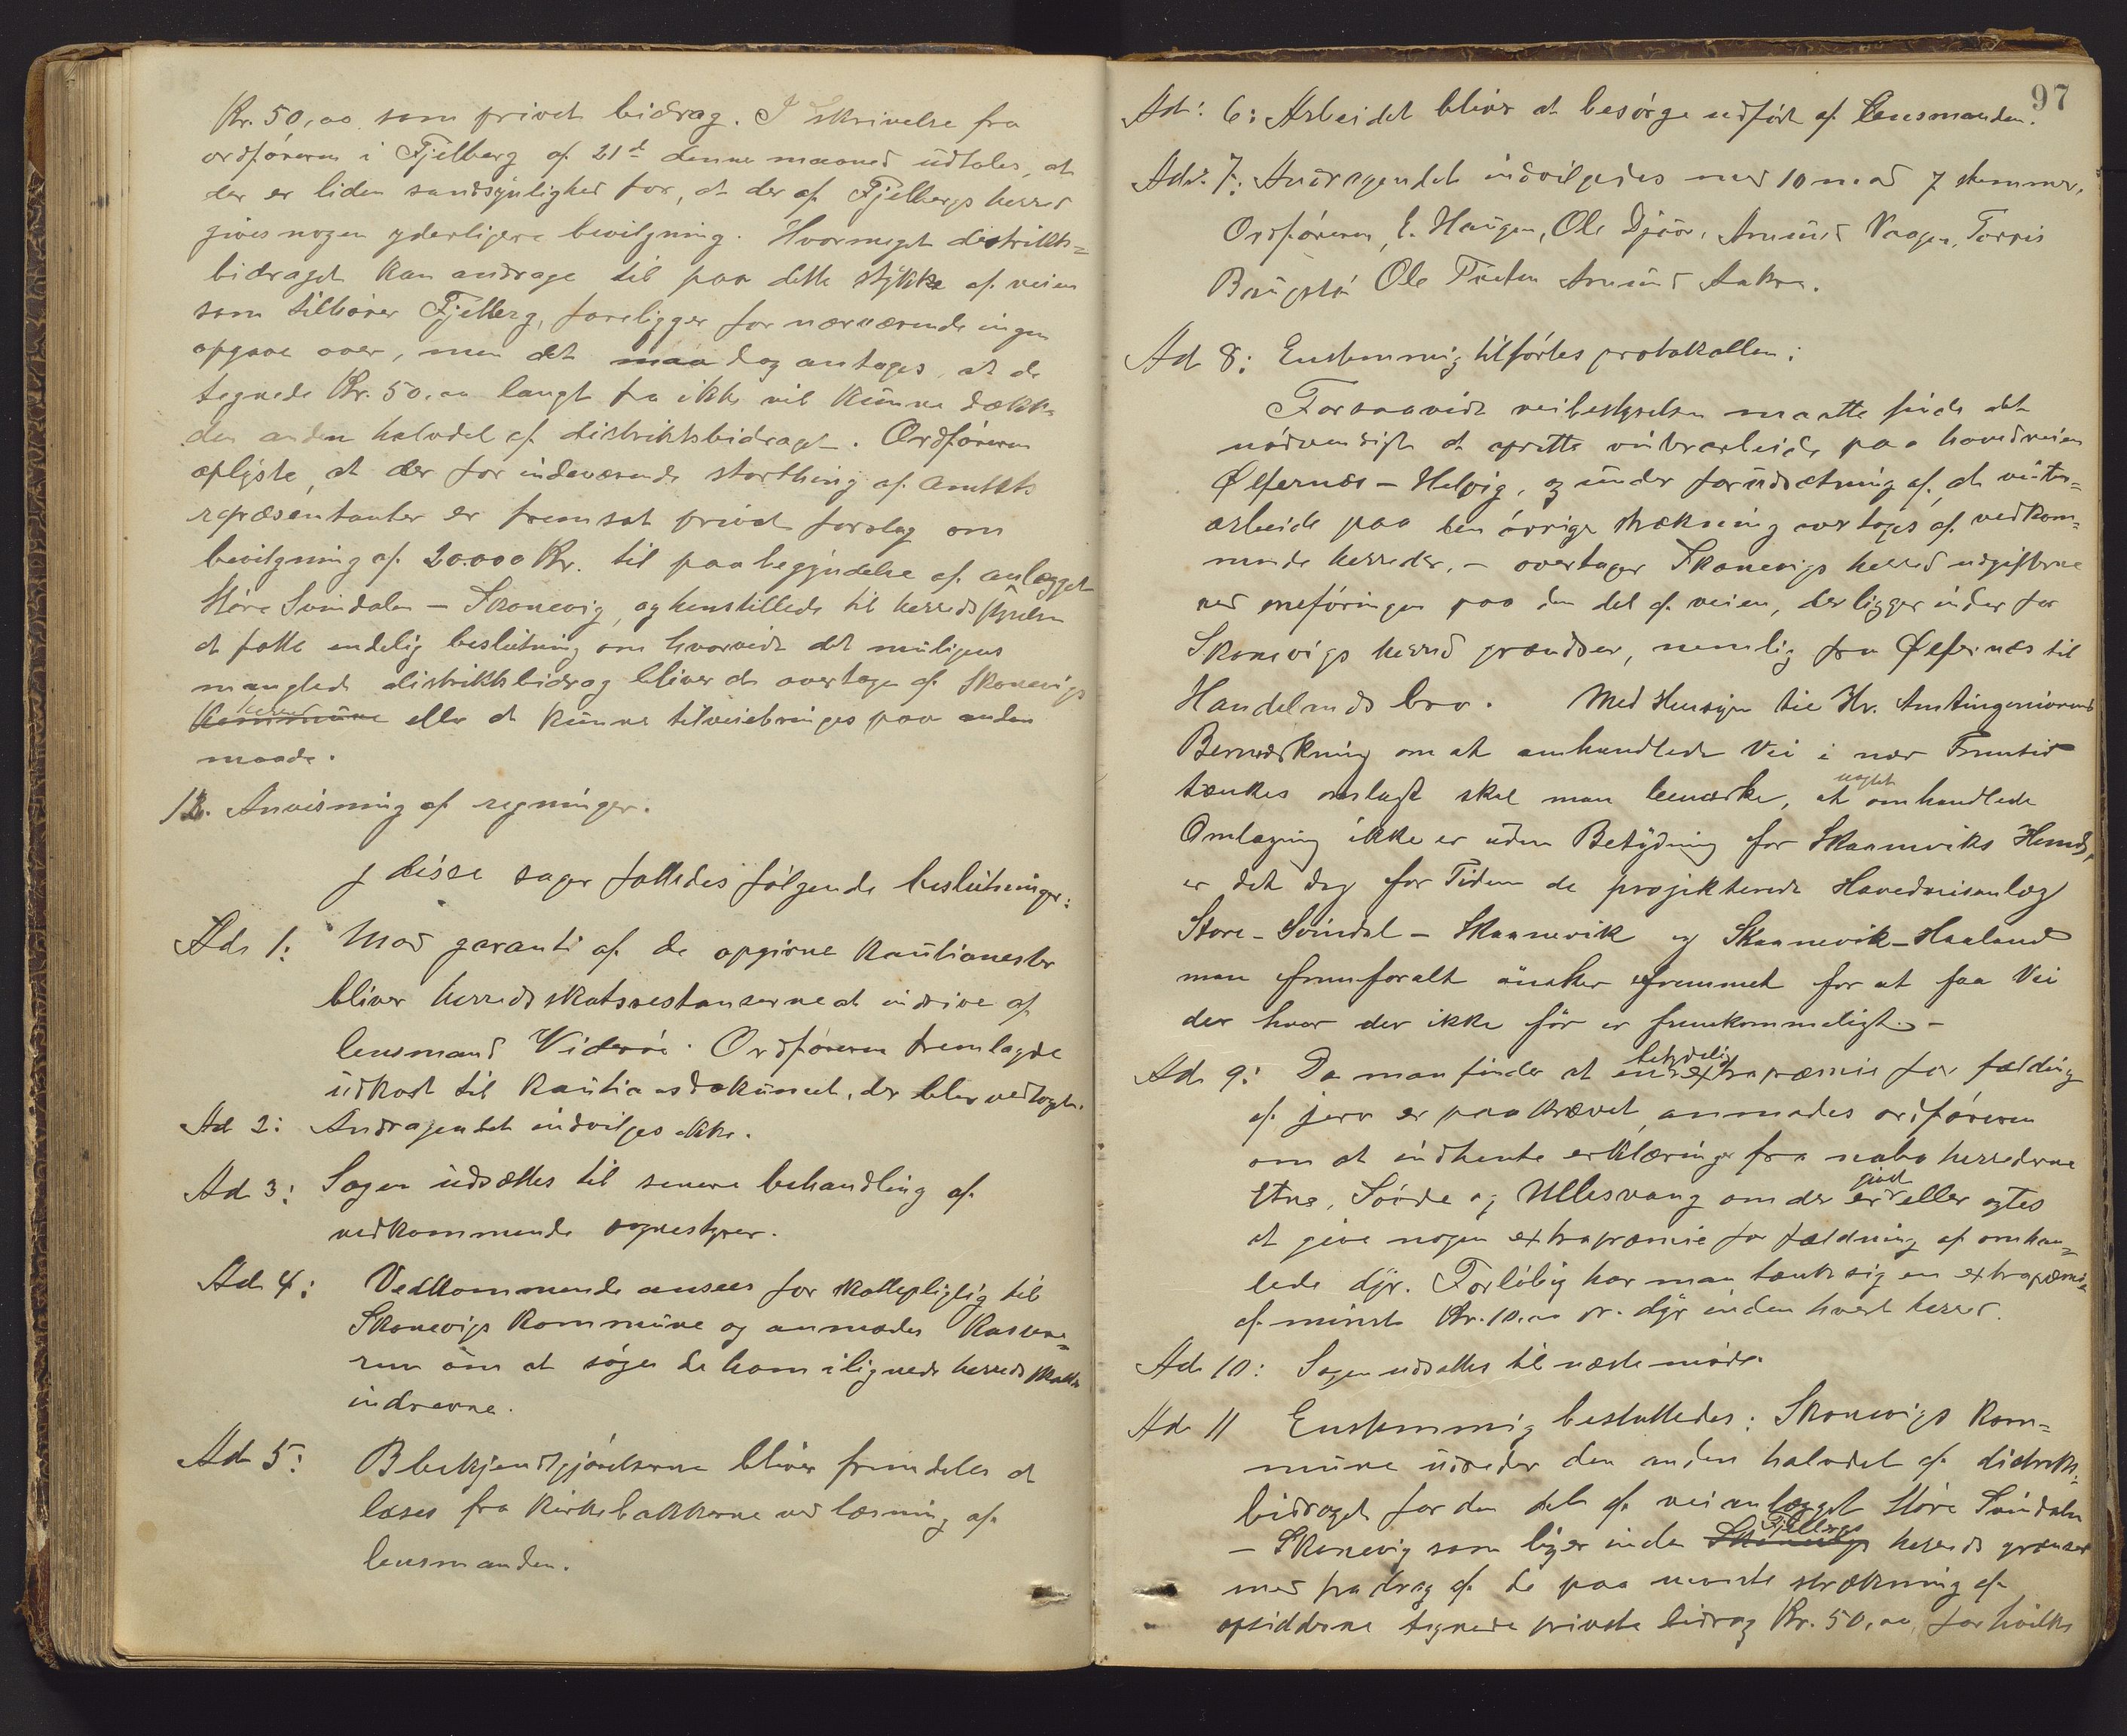 Kr. 50,00 som privat bidrag. I skrivelse fra
ordføreren i Fjelberg af 21de denne maaned udtales, at
der er liden sandsynlighed for, at der af Fjelbergs herred
gives nogen yderligere bevilgning. Hvormeget distrikts=
bidraget kan andrage til paa dette stykke af veien
som tilhører Fjelberg, foreligger for nærværende ingen
opgave over, men det maa dog antages, at de
tegnede Kr. 50,00 langt fra ikke vil kunne dække
den anden halvdel af distriktsbidraget. Ordføreren
oplyste, at der for indeværende storthing af amtets
repræsentanter er fremsat privat forslag om
bevilgning af 20.000 Kr. til paabegyndelse af anlægget
Store Svindalen – Skonevig, og henstillede til herredsstyrelsen
at fatte endelig beslutning om hvorvidt det muligens
manglede distriktsbidrag bliver at overtage af Skonevigs
herred
Kommune eller at kunne tilveiebringes paa anden
maade.
12. Anvisning af regninger.
I disse sager fattedes følgende beslutninger:
Ad 1: Mod garanti af de opgivne kautionister
bliver herredsskatsrestanserne at inddrive af
lensmand Viderøe. Ordføreren fremlagde
udkast til kautionsdokument, der blev vedtaget.
Ad 2: Andragendet indvilges ikke.
Ad 3: Sagen udsættes til senere behandling af
vedkommende sognestyrer.
Ad 4: Vedkommende ansees for skattepligtig til
Skonevigs kommune og anmodes kasserer=
ren om at søge de ham ilignede herredsskatte
inddrevne.
Ad 5: Bbekjendtgjørelserne bliver fremdeles at
læses fra kirkebakkerne ved læsning af
lensmanden.
97
Ad: 6: Arbeidet bliver at besørge udført af lensmanden.
Ad: 7: Andragendet indvilgedes med 10 mod 7 stemmer.
Ordføreren, E. Haugen, Ole Djøør, Amund Vaagen, Torris
Baugstø Ole Tveten Amund Aakra.
Ad 8: Enstemmig tilførtes protokollen:
Forsaavidt veibestyrelsen maatte finde det
nødvendigt at oprette vinterarbeide paa hovedveien
Ølfernæs – Helvig, og under forudsætning af, at vinter=
arbeide paa den øvrige strækning overtages af vedkom=
mende herreder, – overtager Skonevigs herred udgifterne
ved sneføringen paa den del af veien, der ligger inden for
Skonevigs herred grændser, nemlig fra Ølfernæs til
Handelands bro. Med Hensyn til Hr. Amtingeniørens
Bemærkning om at omhandlede Vei i nær Fremtid
uagtet
tænkes omlagt skal man bemærke, at omhandlede
Omlægning ikke er uden Betydning for Skaaneviks Herred,
er det dog for Tiden de projekterede Hovedveisanlæg
Store – Svindal – Skaanevik og Skaanevik – Haaland
man fremforalt ønsker fremmet for at faa Vei
der hvor der ikke før er fremkommeligt. –
betydelig
Ad 9: Da man finder at en extrapræmie for fælding
af jerv er paakrævet, anmodes ordføreren
om at indhente erklæringer fra naboherrederne
givet
Etne, Søvde og Ullesvang om der er eller agtes
at give nogen extrapræmie for fældning af omhan=
lede dyr. Forløbig har man tænkt sig en extrapræmie
af mindst Kr. 10,00 pr. dyr inden hvert herred.
Ad 10: Sagen udsattes til næste møde.
Ad 11 Enstemmig besluttedes: Skonevigs kom=
mune udreder den anden halvdel af distrikts=
bidraget for den del af veianlægget Store Svindalen
Fjelbergs
– Skonevig som ligger inden Skonevigs herreds grænser
med fradrag af de paa nævnte strækning af
opsidderne tegnede private bidrag Kr. 50,00, for hvilke